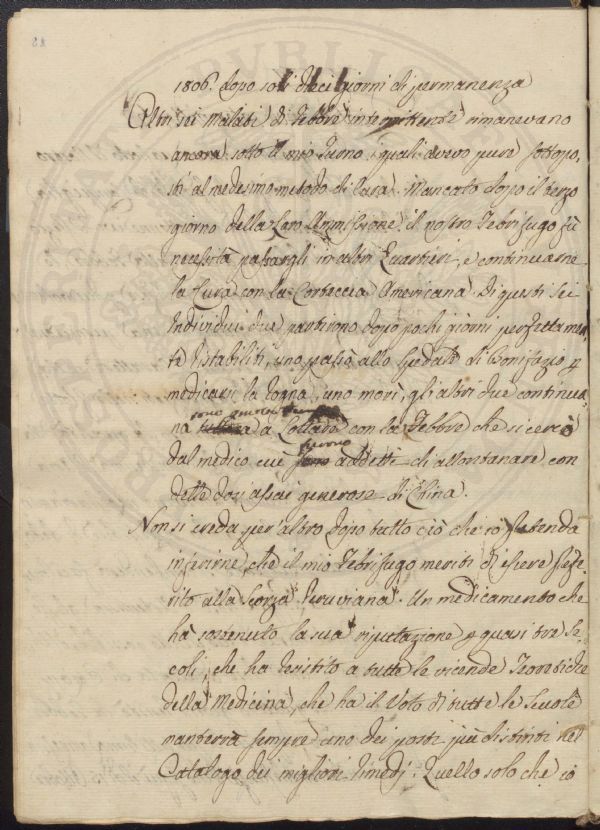 1806. dopo soli dieci giorni di permanenza
Altri sei Malati di Febbre intermittente rimanevano
ancora sotto il mio turno, i quali avevo pure sottopo,
sti al medesimo metodo di Cura. Mancato dopo il terzo
giorno della Loro Ammissione il nostro Febrifugo fù
necessità passargli in altri Quartieri, e continuarne
la Cura con la Corteccia Americana. Di questi sei
Individui due partirono dopo pochi giorni perfettamen,
te ristabiliti, uno passò allo Spedale di Bonifazio p
medicarsi la rogna, uno morì, gli altri due continua,
na a lottare con la Febbre che si cercò
dal medico cui furono addetti di allontanare con
delle dosi assai generose di China.
Non si creda per altro dopo tutto ciò che io pretenda
inferirne, che il mio Febrifugo meriti di essere prefe,
rito alla Scorza Peruviana. Un medicamento che
hà sostenuto la sua riputazione p quasi tre Se,
coli, che ha resistito a tutte le vicende Teoretiche
della Medicina, che ha il Voto di tutte le Scuole
manterrà sempre uno dei posti più distinti nel
Catalogo dei migliori rimedj. Quello solo che io